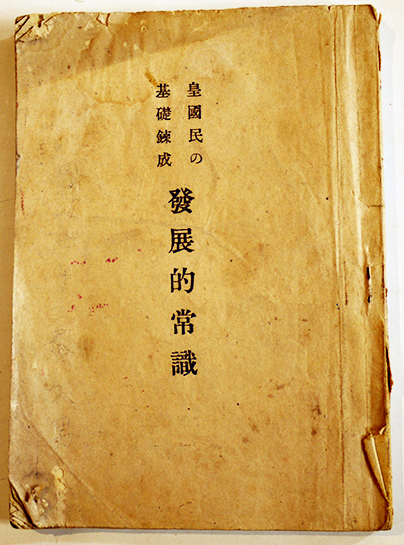 皇國民の
基礎錬成
發展的常識